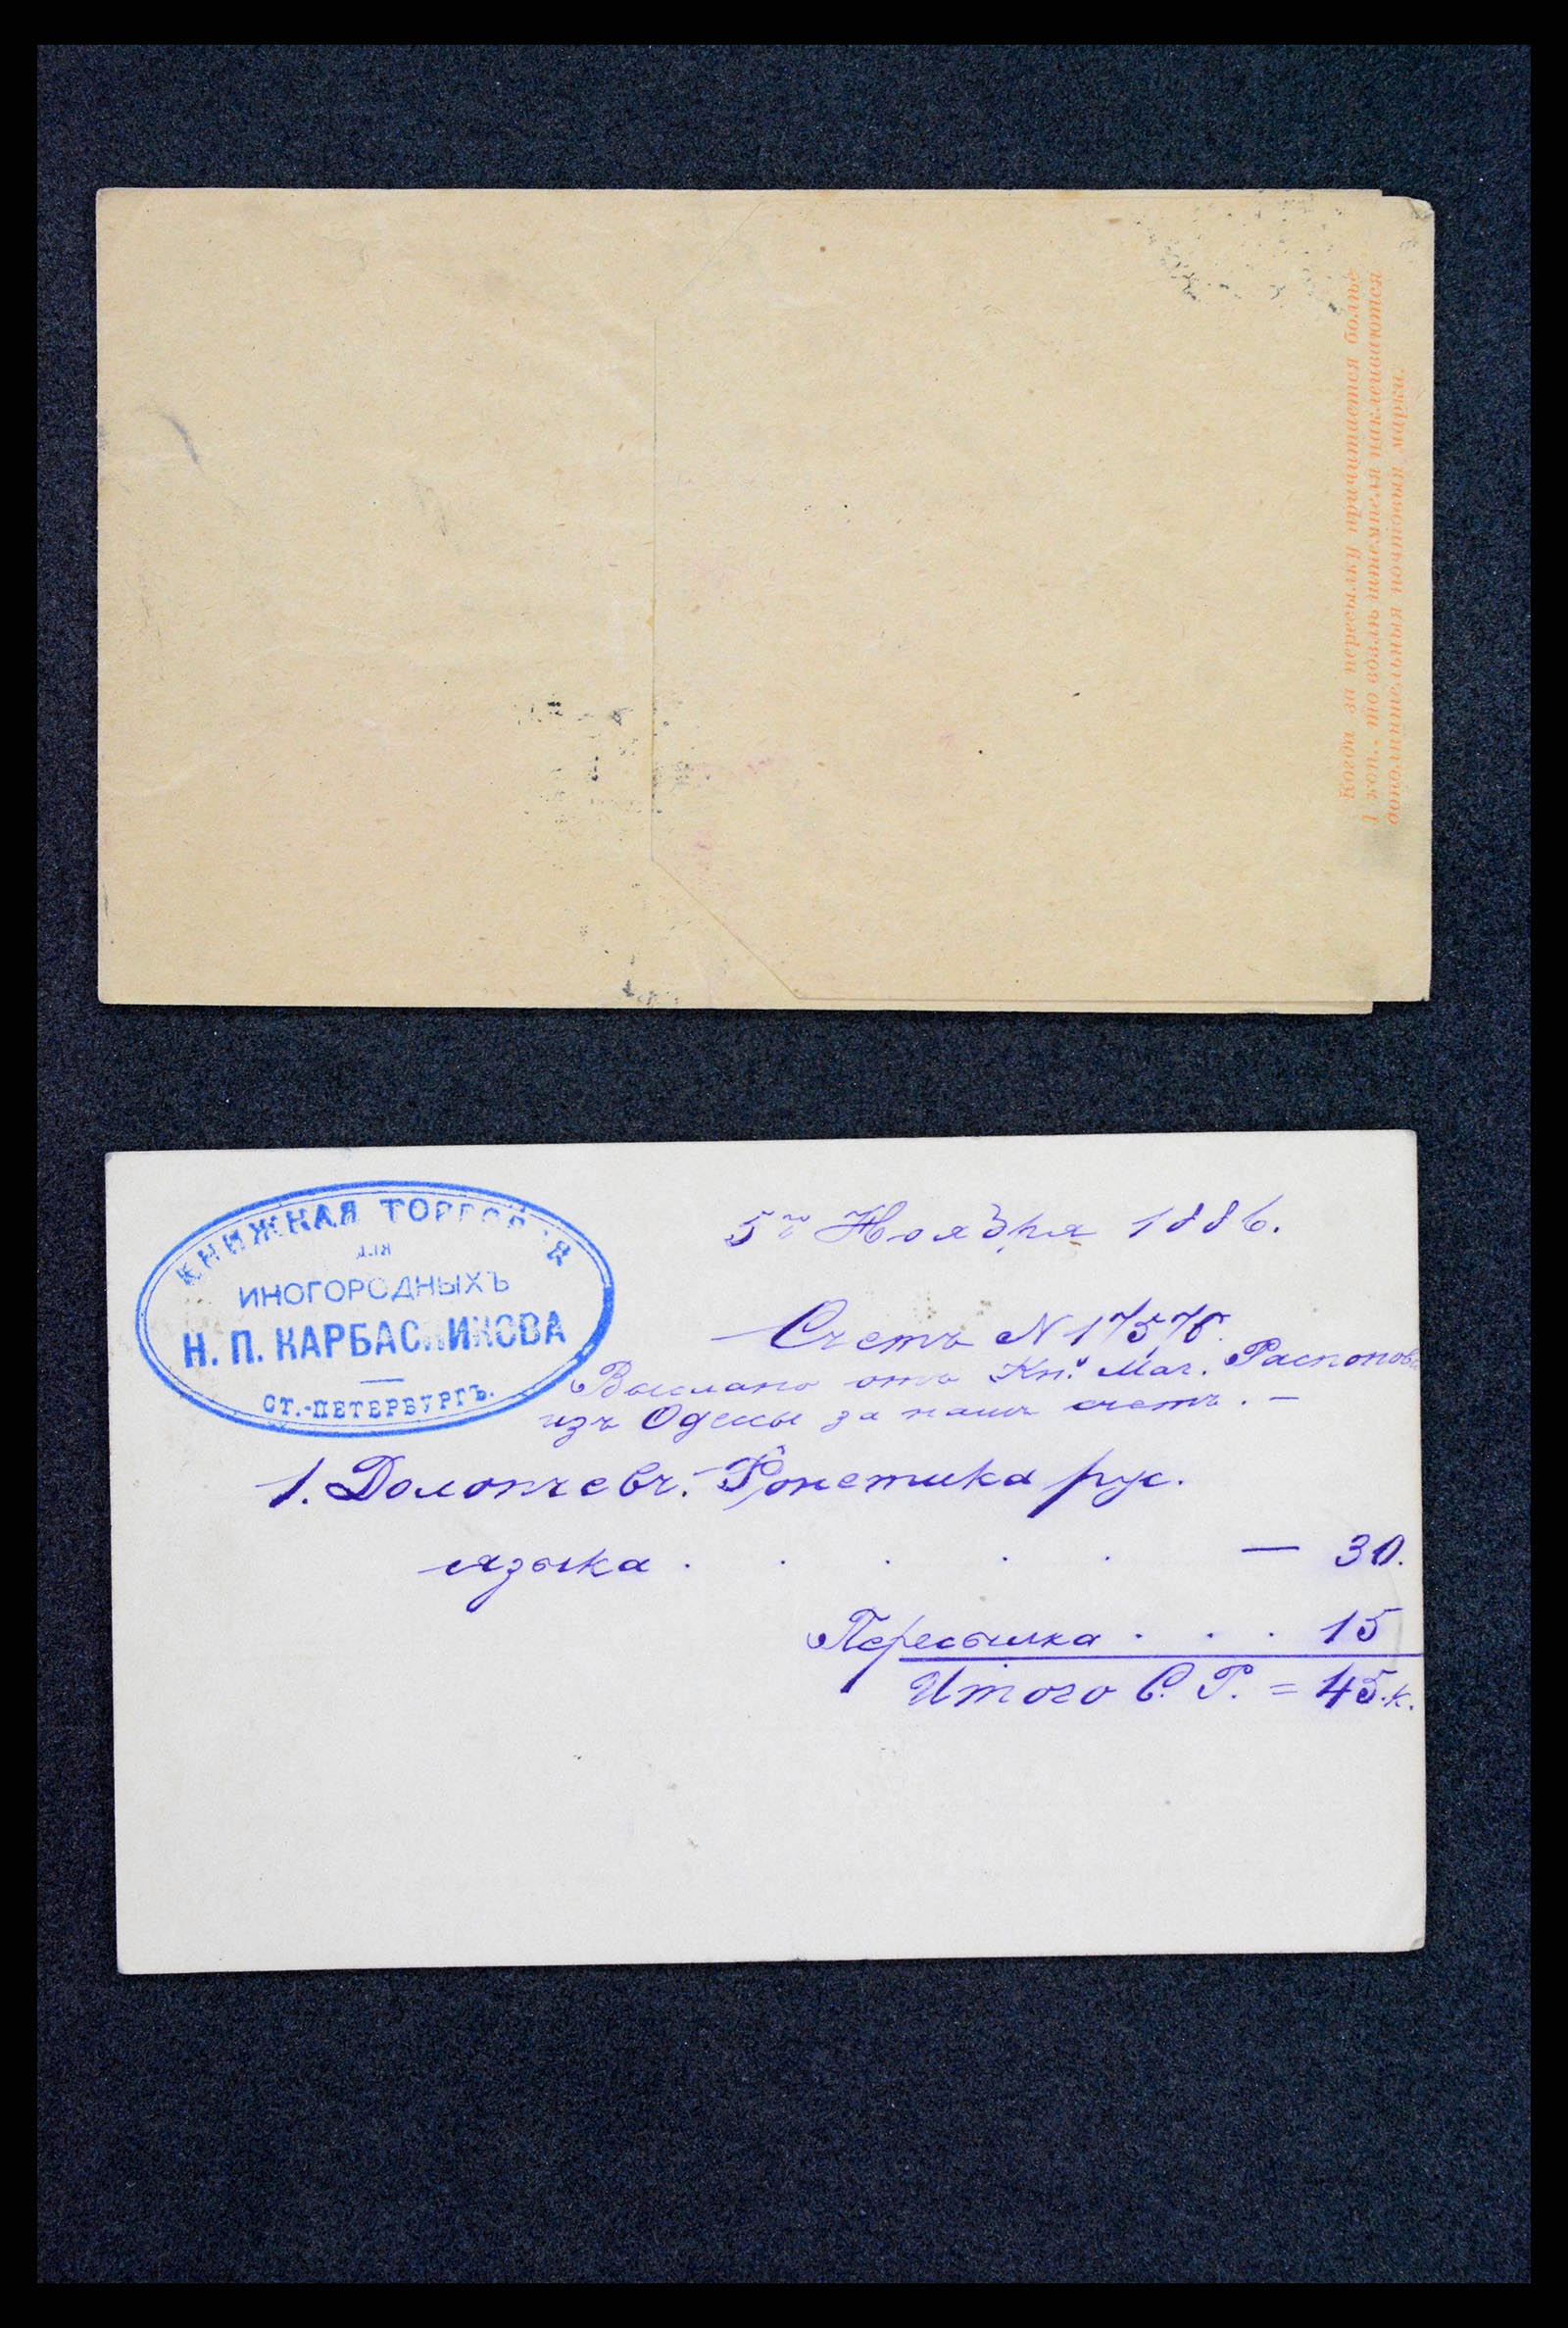 Когда за пересылку причитается болѣе
1 коп., то возлѣ штемпеля наклеиваются
дополнительныя почтовыя марки.
КНИЖНАЯ
для
ИНОГОРОДНЫХЪ
Н. П. КАРБАСНИКОВА
СТ.-ПЕТЕРБУРГЪ.
5го Ноября 1886.
Счетъ N
Выслано отъ Кн. Маг. Распопова
изъ Одессы за нашъ счетъ. —
1. Долопчевъ. Фонетика рус.
языка . . . . . — 30.
Пересылка . . . 15
Итого С. Р. = 45.к.